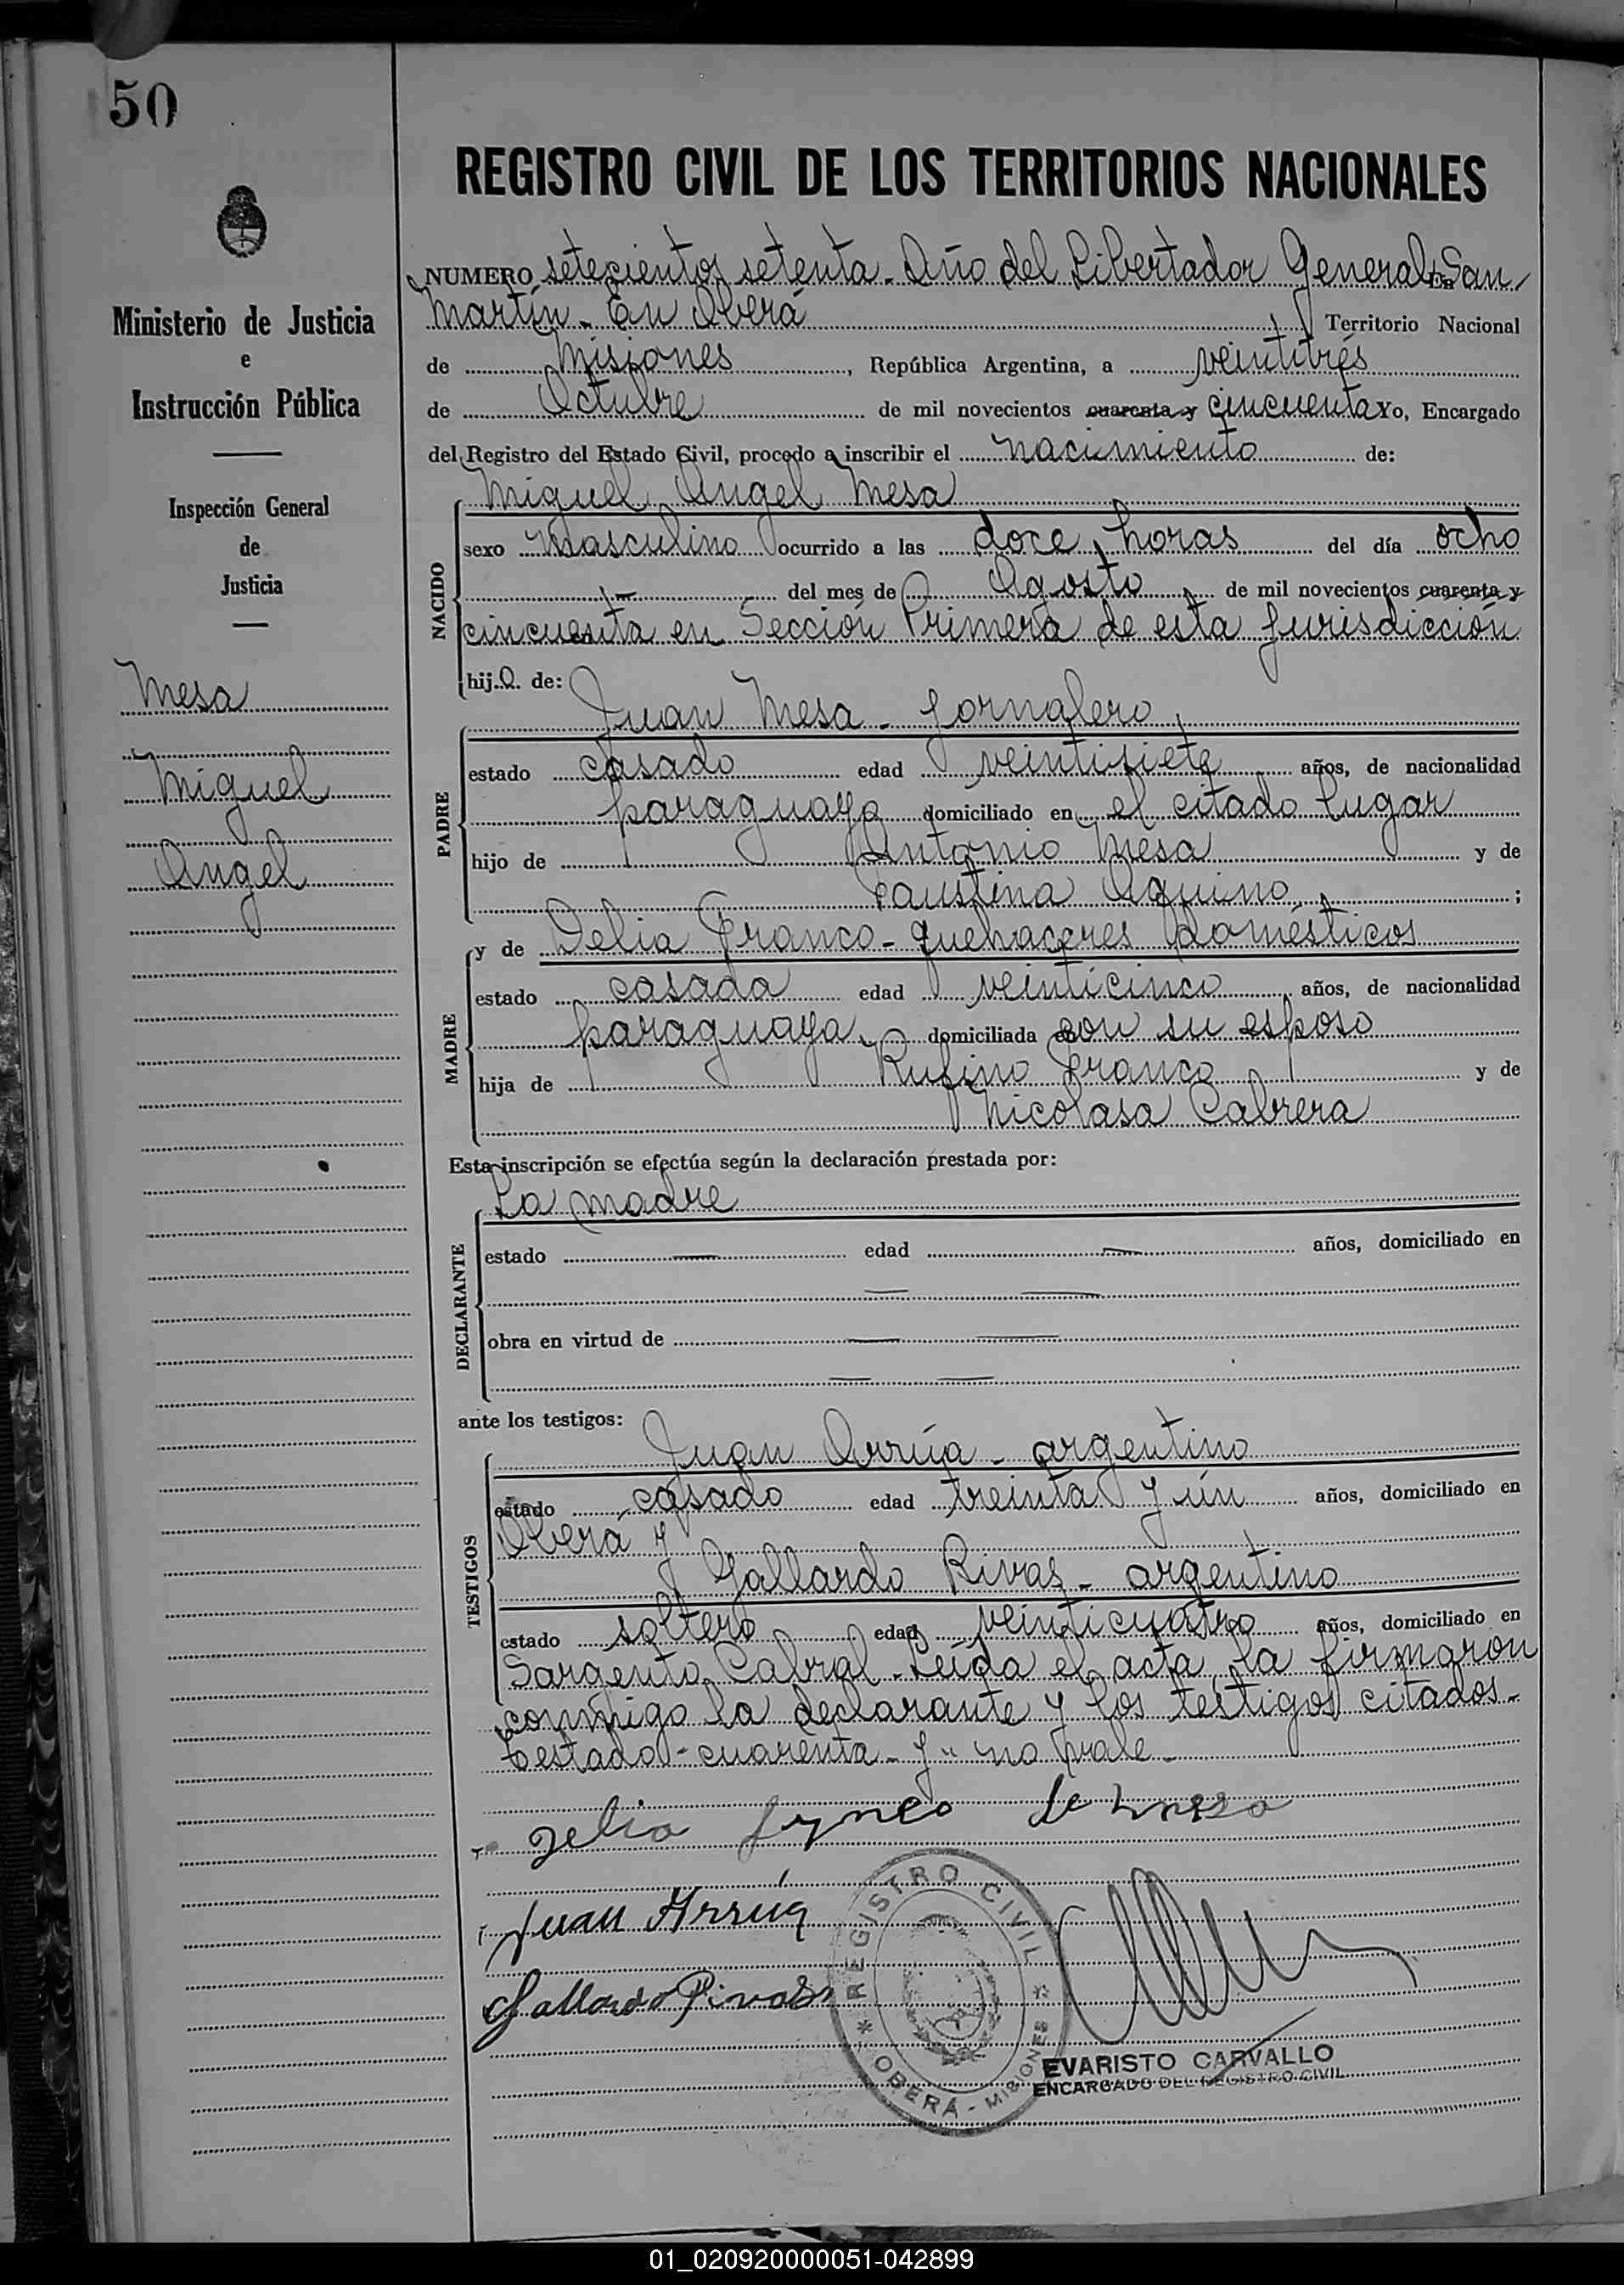 50
Ministerio de Justicia
e
Instrucción Pública
Inspección General
de
Justicia
Mesa
Miguel
Angel
REGISTRO CIVIL DE LOS TERRITORIOS NACIONALES
NUMERO setecientos setenta. Año del Libertador General San
Martín. En Oberá Territorio Nacional
de Misiones, República Argentina, a veintitrés
de Octubre de mil novecientos cuarenta y cincuenta Yo, Encargado
del Registro del Estado Civil, procedo a inscribir el nacimiento de:
NACIDO
Miguel Angel Mesa
sexo masculino ocurrido a las doce horas del día ocho
del mes de Agosto de mil novecientos cuarenta y
cincuenta en Sección Primera de esta jurisdicción
hijo de:
PADRE
Juan Mesa - jornalero,
estado casado edad veintisiete años, de nacionalidad
paraguaya domiciliado en el citado lugar
hijo de Antonio Mesa y de
Faustina Aquino, ;
MADRE
y de Delia Franco - quehaceres domésticos
estado casada edad veinticinco, años, de nacionalidad
paraguaya, domiciliada con su esposo
hija de Rufino Franco y de
Nicolasa Cabrera
Esta inscripción se efectúa según la declaración prestada por:
DECLARANTE
La madre
estado — edad — años, domiciliado en
— —
obra en virtud de — —
— —
ante los testigos:
TESTIGOS
Juan Arrúa - argentino
estado casado edad treinta y ún años, domiciliado en
Oberá y
Gallardo Rivas - argentino
estado soltero edad veinticuatro años, domiciliado en
Sargento Cabral. Leída el acta, la firmaron
conmigo la declarante y los testigos citados.
Testado - cuarenta - y " no vale.
Delia franco de mesa
Juan Arrúa
Gallardo Rivas
REGISTRO CIVIL
OBERÁ - MISIONES
EVARISTO CARVALLO
ENCARGADO DEL REGISTRO CIVIL
01_020920000051-042899